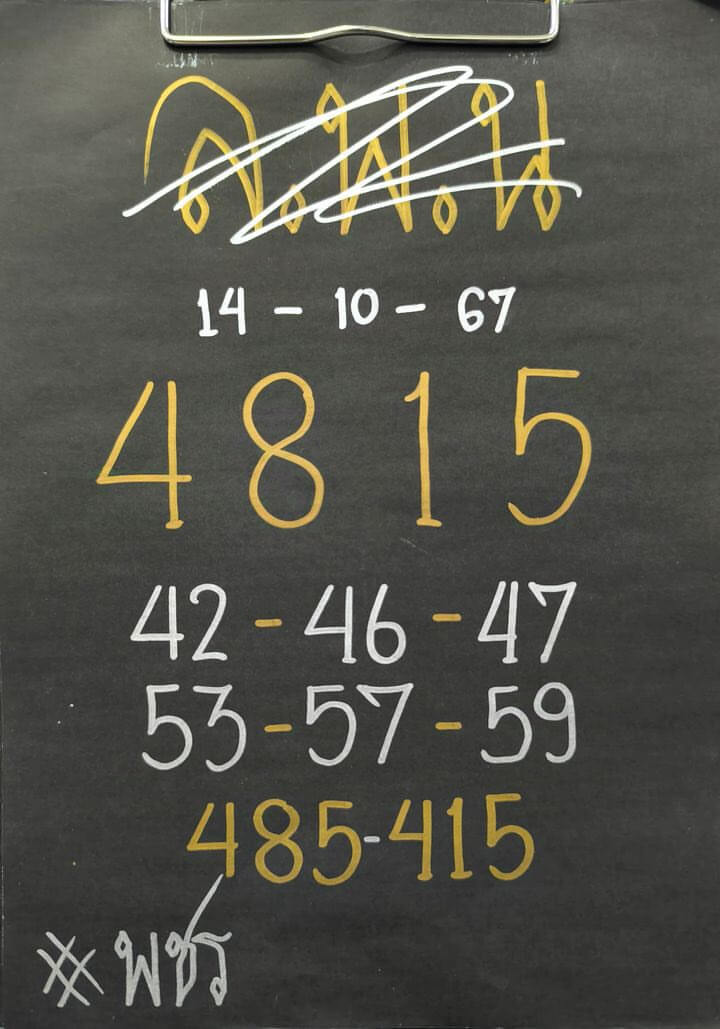 14 - 10 - 67
4 8 1 5
42 - 46 - 47
53 - 57 - 59
485-415
#พชร